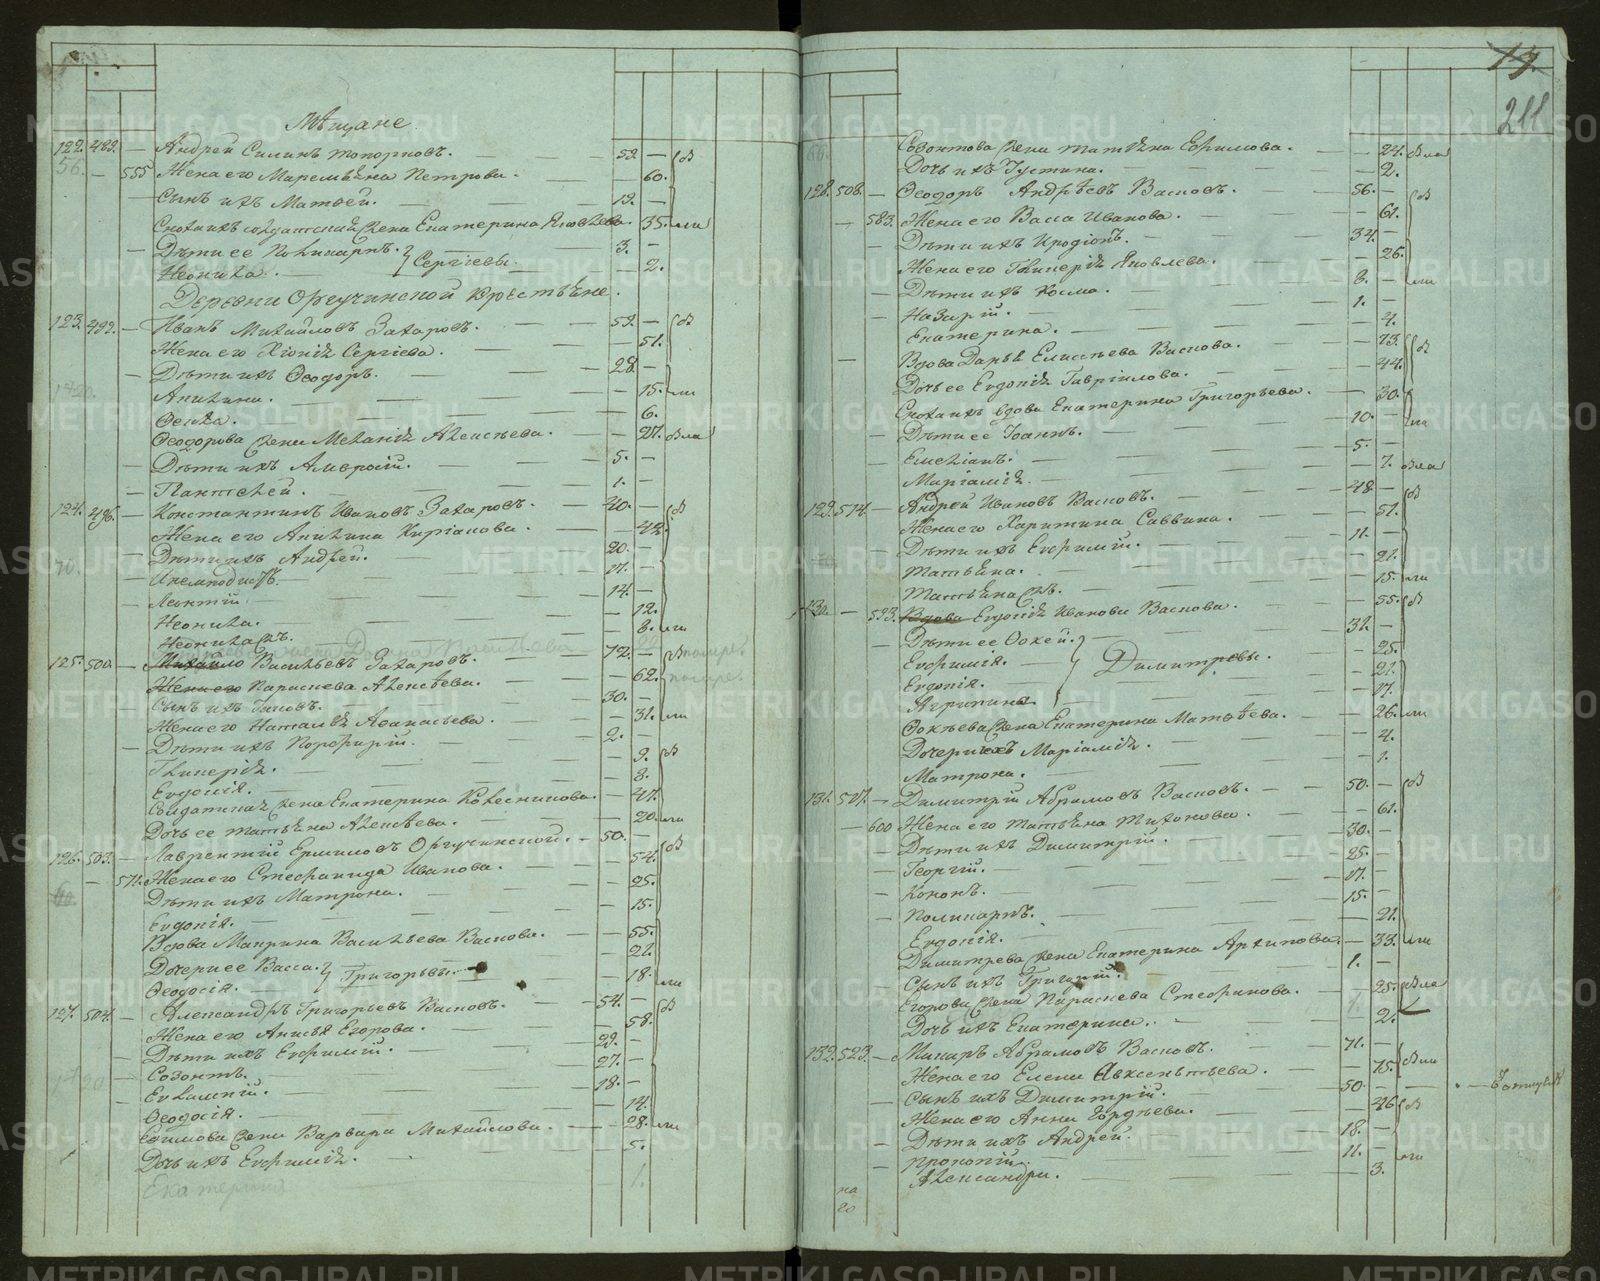 Мѣщане
122. 489. — Андрей Силинъ Топорковъ. 59. —
56. — 555 Жена его Маремьяна Петрова. — 60.
— Сынъ ихъ Матвей. 19. —
Сноха ихъ солдатская жена Екатерина Яковлева. — 35.
— Дѣти ее Поликарпъ. } Сергѣевы. 3. —
Неонила. — 2.
Деревни Оргучинской Крестьяне.
123. 492. — Иванъ Михайловъ Захаровъ. 59. —
Жена его Хіонія Сергіева. — 51.
— Дѣти ихъ Ѳеодоръ. 28. —
Акилина. — 15.
Ѳекла. — 6.
Ѳеодорова жена Меланія Алексѣева. — 27.
— Дѣти ихъ Амвросій. 5. —
— Пантелей. 1. —
124. 496. — Константинъ Ивановъ Захаровъ. 40. —
Жена его Акилина Киріакова. — 42.
— Дѣти ихъ Андрей. 20. —
70. — Икемподистъ. 17. —
— Леонтій. 14. —
Неонила. — 12.
Неонила 2я. — 8.
125. 500. — Михайло Васильевъ Захаровъ. 72. —
Жена его Параскева Алексѣева. — 62.
— Сынъ ихъ Іаковъ. 30. —
Жена его Наталія Аѳанасьева. — 31.
— Дѣти ихъ Порфирій. 2. —
Гликерія. — 9.
Евдокія. — 8.
Солдатская жена Екатерина Колесникова. — 47.
Дочь ее Татьяна Алексѣева. — 20.
126. 503. — Лаврентій Ермиловъ Оргучинской. 50. —
— 571. Жена его Стефанида Иванова. — 54.
Дѣти ихъ Матрона. — 25.
Евдокія. — 15.
Вдова Макрина Васильева Васкова. — 55.
Дочери ее Васса. } Григорьевы. — 22.
Ѳеодосія. — 18.
127. 504. — Александръ Григорьевъ Васковъ. 54. —
Жена его Анисья Егорова. — 58.
— Дѣти ихъ Евфимій. 29. —
— Созонтъ. 27. —
— Евлампій. 18. —
Ѳеодосія. — 14.
Евфимова жена Варвара Михайлова. — 28.
Дочь ихъ Евфимія. — 5.
Екатерина 1.
17.
211
Созонтова жена Татьяна Ефимова. — 24.
Дочь ихъ Іустина. — 2.
128. 508. — Ѳеодоръ Андрѣевъ Васковъ. 56. —
— 583. Жена его Васса Иванова. — 61.
— Дѣти ихъ Иродіонъ. 34. —
Жена его Гликерія Яковлева. — 26.
— Дѣти ихъ Косма. 8. —
— Назарій. 1. —
Екатерина. — 4.
— Вдова Дарья Елисѣева Васкова. — 73.
Дочь ее Евдокія Гавріилова. — 44.
Сноха ихъ вдова Екатерина Григорьева. — 30.
— Дѣти ее Іоаннъ. 10. —
— Емельянъ. 5. —
Маріамія. — 7.
129. 514. — Андрей Ивановъ Васковъ. 48. —
Жена его Харитина Саввина. — 51.
— Дѣти ихъ Евфимій. 11. —
Татьяна. — 21.
Татьяна 2я. — 15.
130. — 593. Вдова Евдокія Иванова Васкова. — 55.
— Дѣти ее Фокей. } Димитревы. 31. —
Евфимія. — 25.
Евдокія. — 21.
Агрипина. — 17.
Фокѣева жена Екатерина Матвѣева. — 26.
Дочери ихъ Маріамія. — 4.
Матрона. — 1.
131. 517. — Димитрій Абрамовъ Васковъ. 50. —
— 600 Жена его Татьяна Тихонова. — 61.
— Дѣти ихъ Димитрій. 30. —
— Георгій. 25. —
— Кононъ. 17. —
— Поликарпъ. 15. —
Евдокія. — 21.
Димитрева жена Екатерина Архипова. — 33.
— Сынъ ихъ Григорій. 1. —
Егорова жена Параскева Стефанова. — 25.
Дочь ихъ Екатерина. — 2.
132. 523. — Макаръ Абрамовъ Васковъ. 71. —
Жена его Елена Авксентьева. — 75.
— Сынъ ихъ Димитрій. 50. —
Жена его Анна Гордѣева. — 46
— Дѣти ихъ Андрей. 18. —
— Прокопій. 11. —
Александра. — 3.